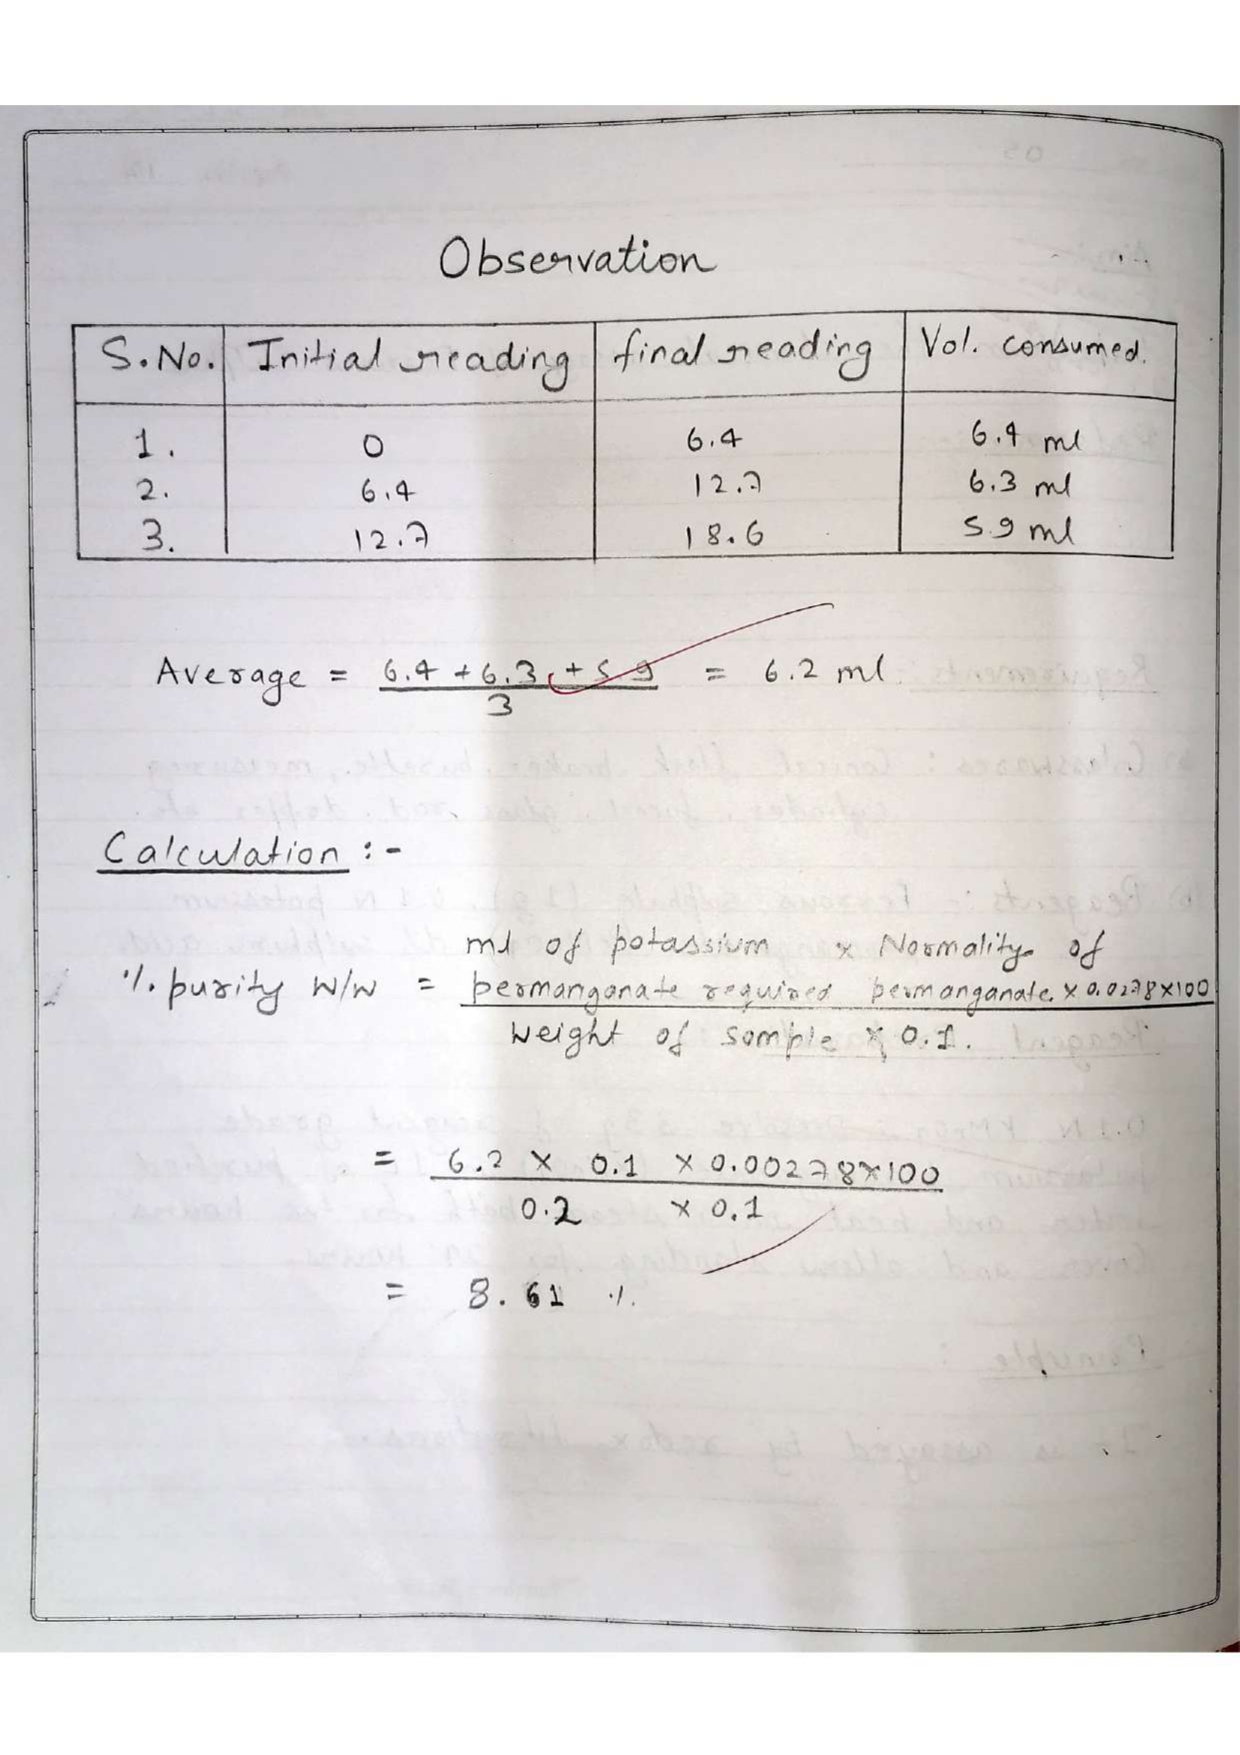 Observation
S.No. Initial reading final reading Vol. consumed.
1. 0 6.4 6.4 ml
2. 6.4 12.7 6.3 ml
3. 12.7 18.6 5.9 ml
Average = 6.4 + 6.3 + 5.9 = 6.2 ml
3
Calculation :-
ml of potassium × Normality of
%. purity W/W = permanganate required permanganate. × 0.0278×100
Weight of sample × 0.1.
= 6.2 × 0.1 × 0.00278×100
0.2 × 0.1
= 8.61 %.